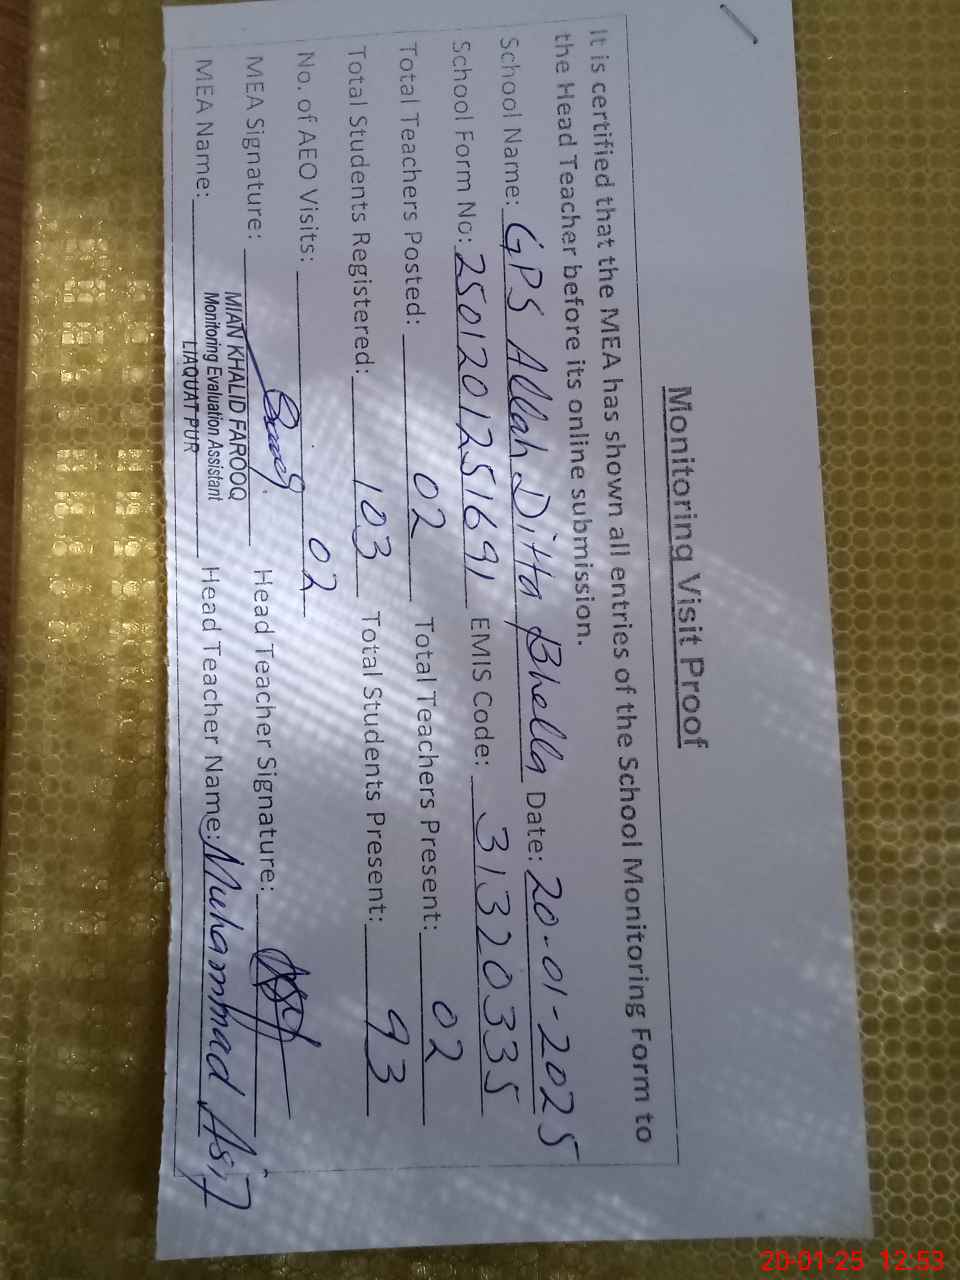 Monitoring Visit Proof
It is certified that the MEA has shown all entries of the School Monitoring Form to
the Head Teacher before its online submission.
School Name: GPS Allah Ditta Bhella Date: 20-01-2025
School Form No: 25012012516 91 EMIS Code: 31320335
Total Teachers Posted: 02 Total Teachers Present: 02
Total Students Registered: 103 Total Students Present: 93
No. of AEO Visits: 02
MEA Signature: Head Teacher Signature:
MIAN KHALID FAROOQ
Monitoring Evaluation Assistant
LIAQUAT PUR
MEA Name: Head Teacher Name: Muhammad Asif
20-01-25 12:53